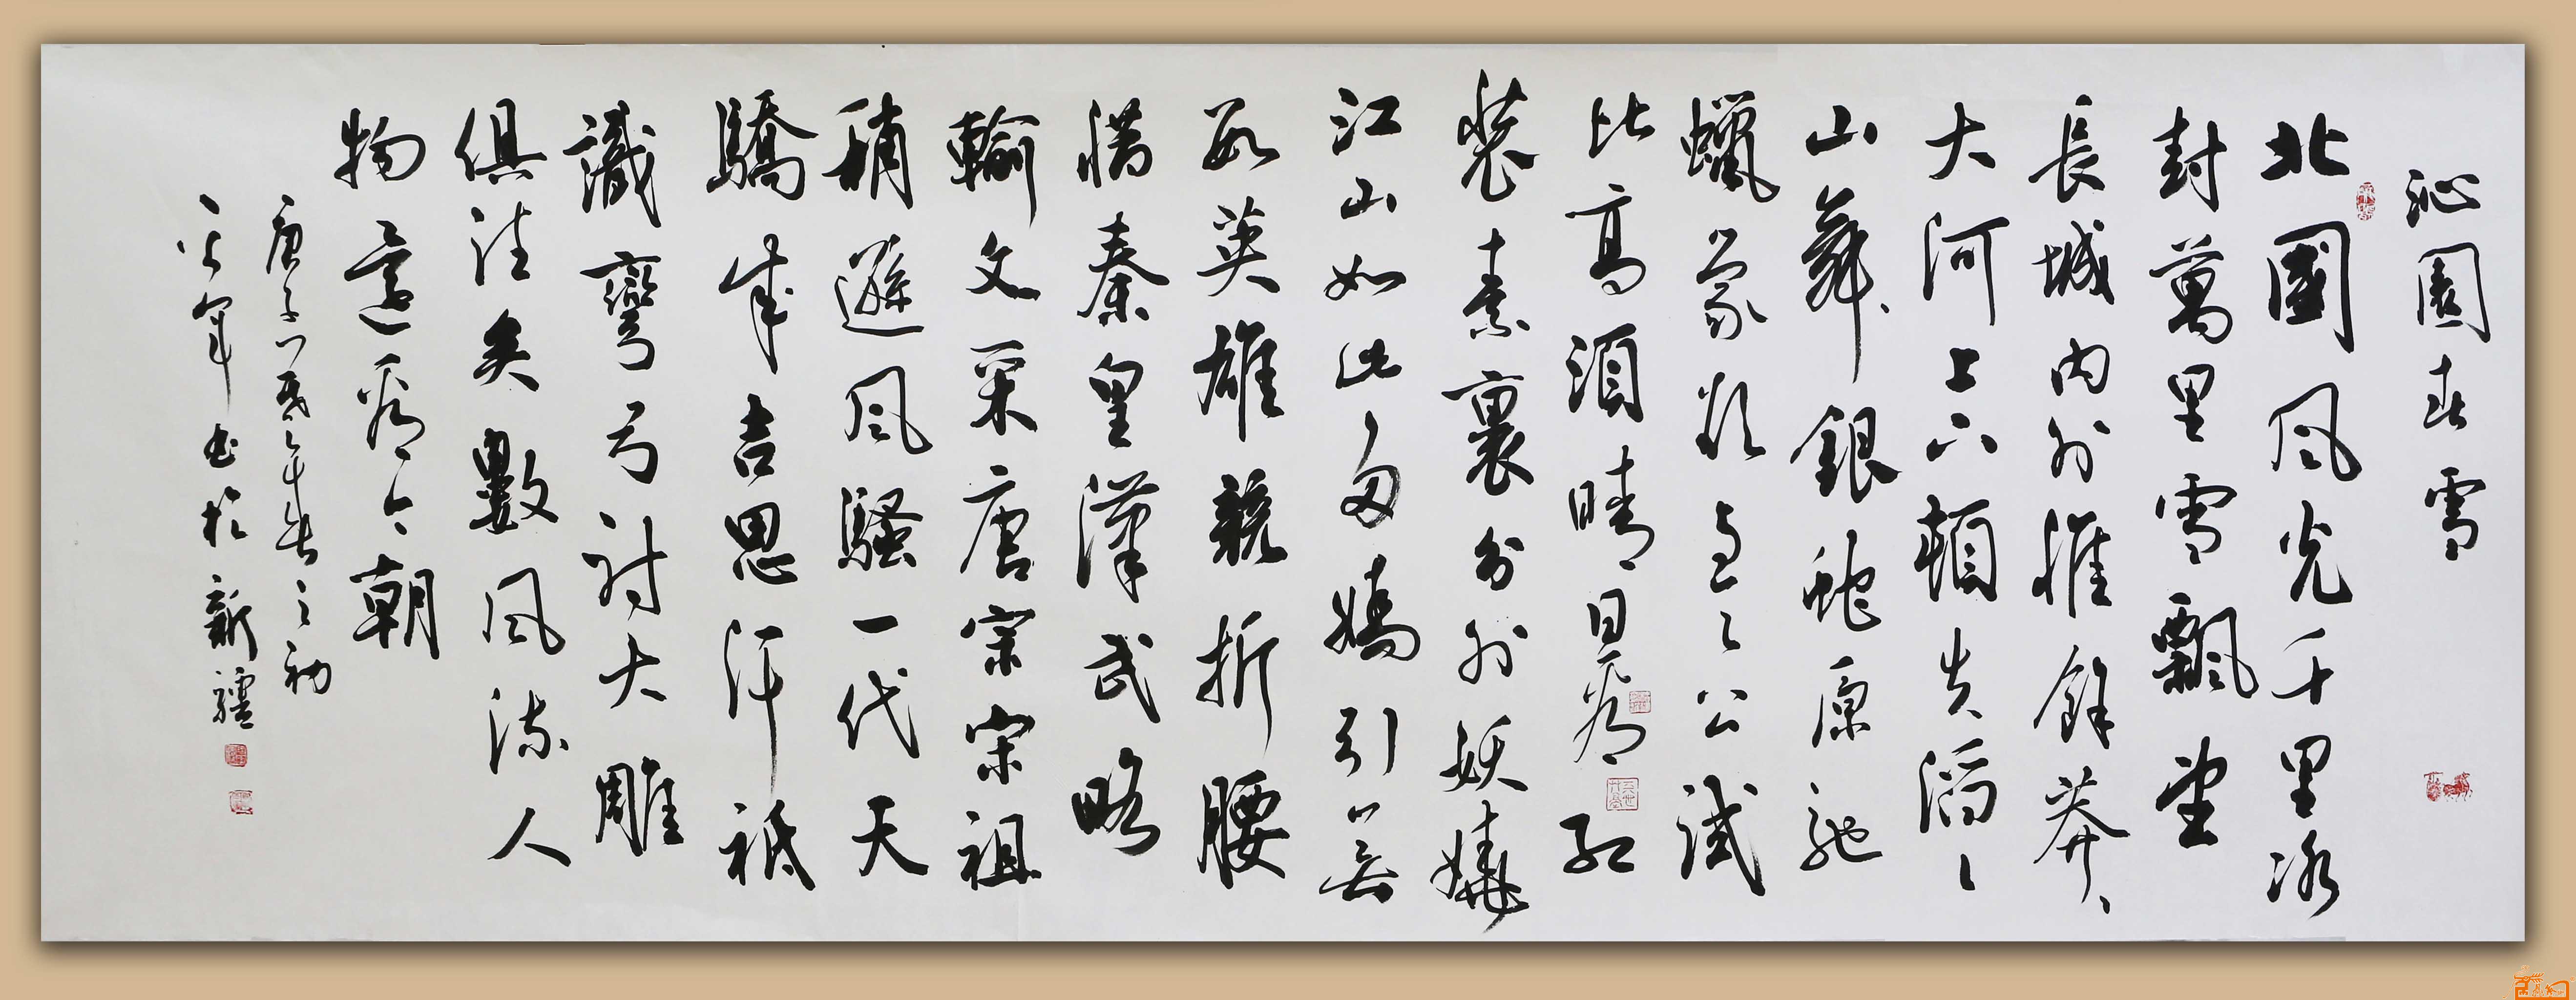 沁園春雪
北國风光千里冰
封萬里雪飄望
長城内外惟餘莽、
大河上下頓失滔、
山舞銀蛇原馳
蠟象欲与天公試
比高須晴日看红
裝素裹分外妖嬈
江山如此多嬌引無
數英雄競折腰
惜秦皇漢武略
輸文采唐宗宋祖
稍遜风騷一代天
驕成吉思汗祗
識彎弓射大雕
俱往矣數风流人
物還看今朝
庚子年之初
军书於新疆